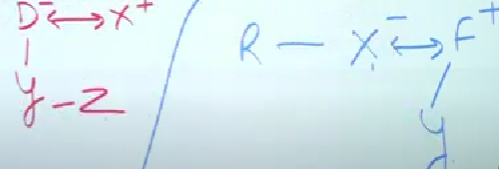 D⁻ ↔ X⁺
y - Z
R — X⁻ ↔ F⁺
y